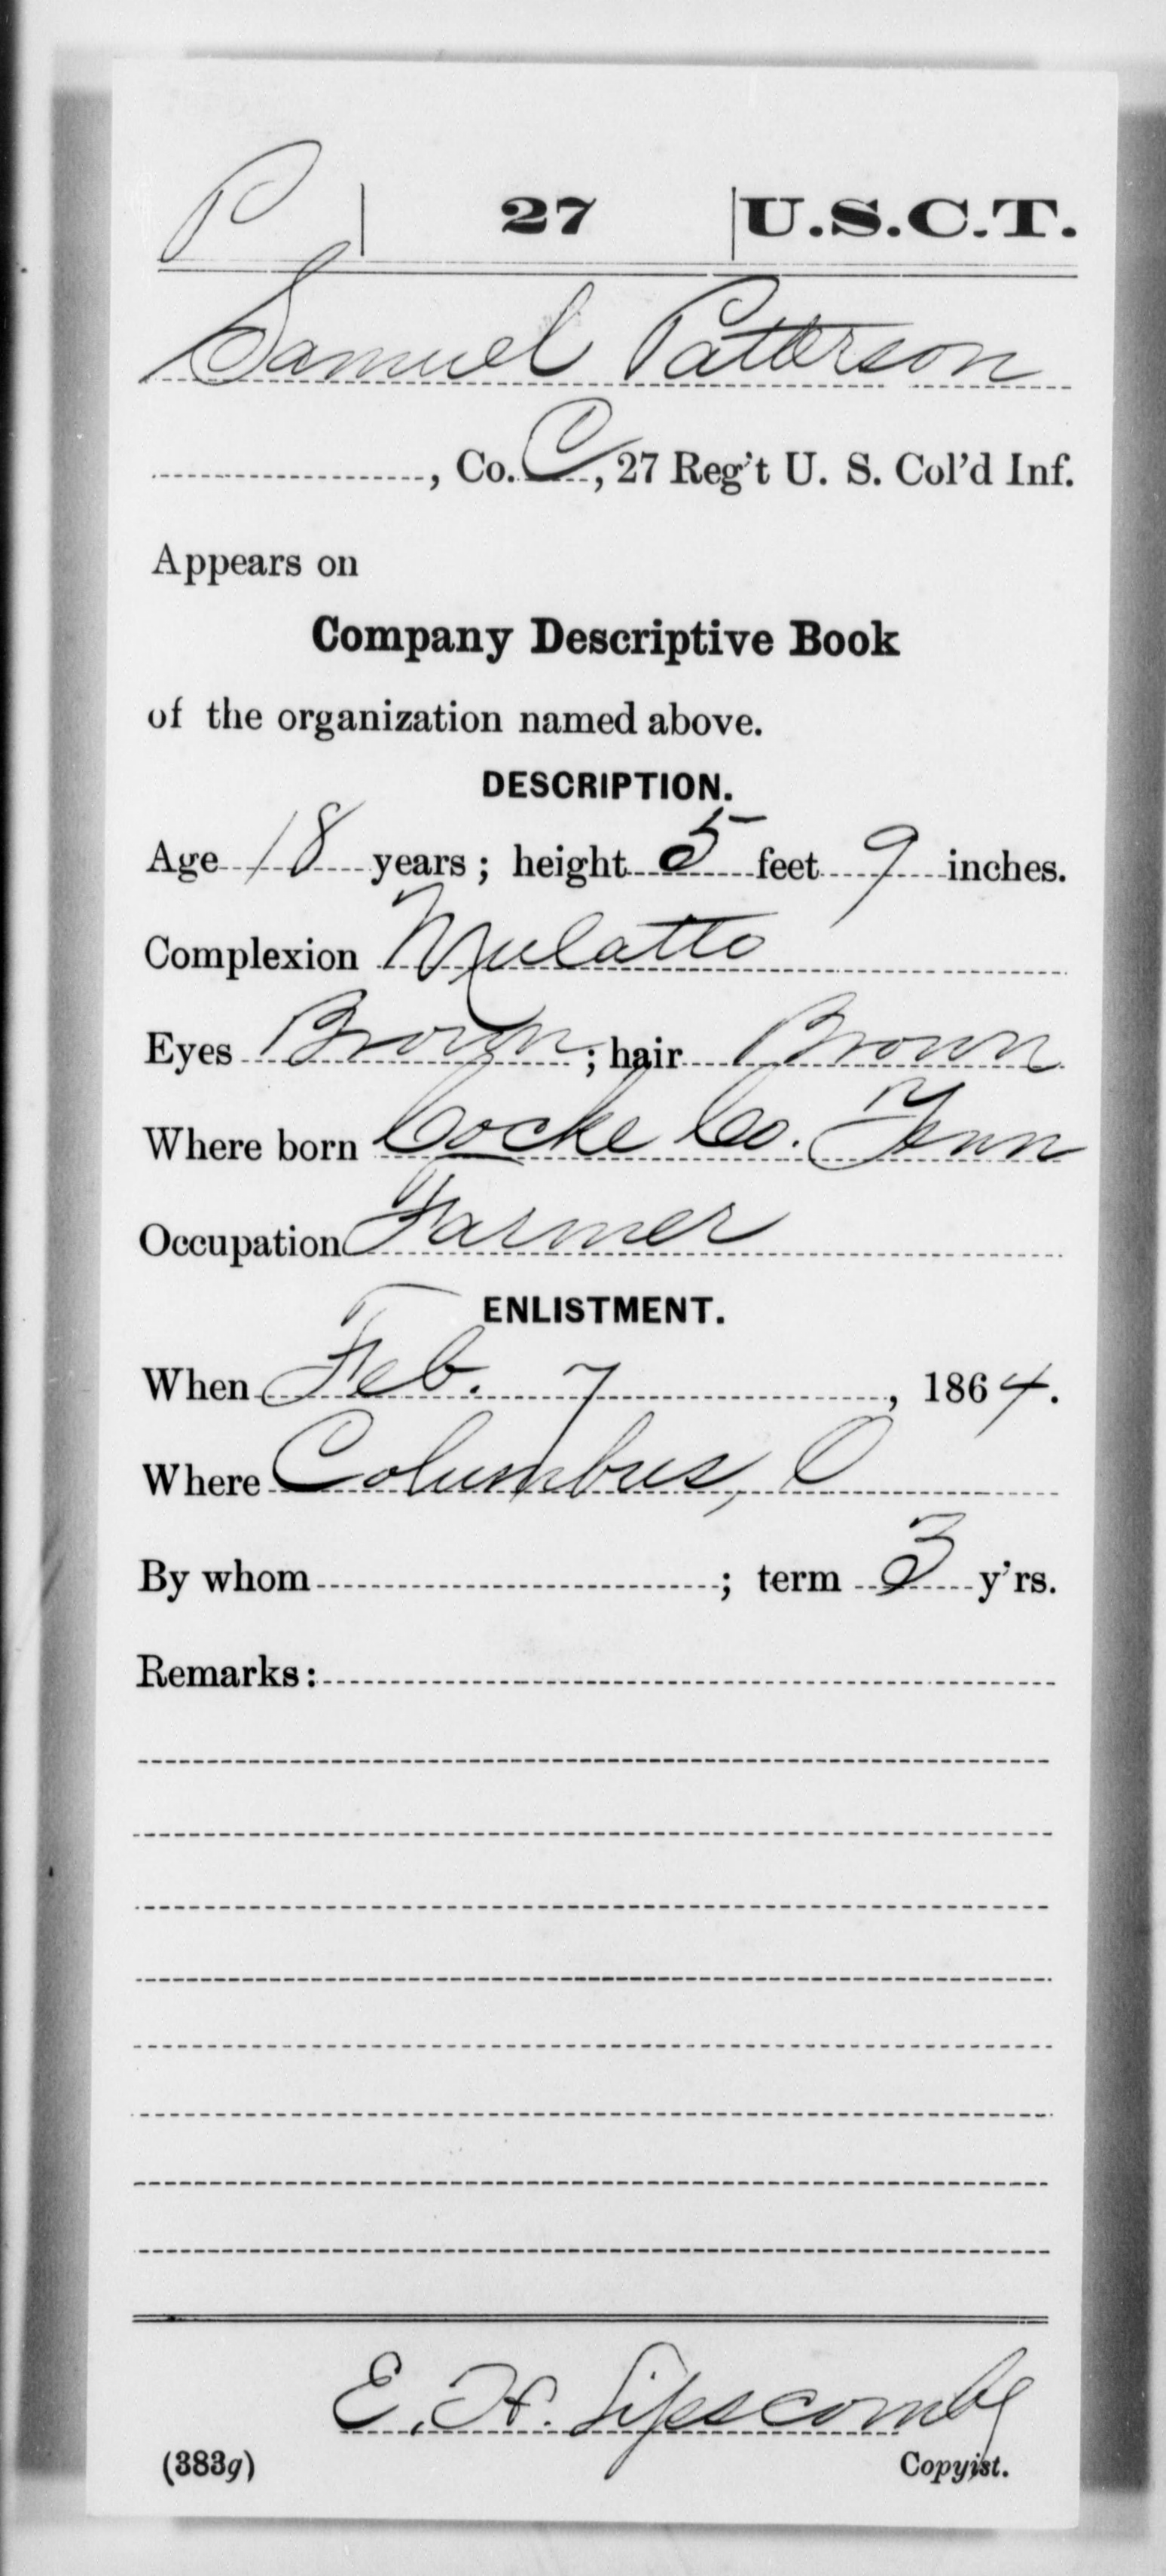 P | 27 | U.S.C.T.
Samuel Patterson
, Co. C, 27 Reg't U. S. Col'd Inf.
Appears on
Company Descriptive Book
of the organization named above.
DESCRIPTION.
Age 18 years; height 5 feet 9 inches.
Complexion Mulatto
Eyes Brown; hair Brown
Where born Cocke Co. Tenn
Occupation Farmer
ENLISTMENT.
When Feb. 7, 1864.
Where Columbus, O
By whom ; term 3 y'rs.
Remarks:
E. H. Lipscomb
(383g) Copyist.